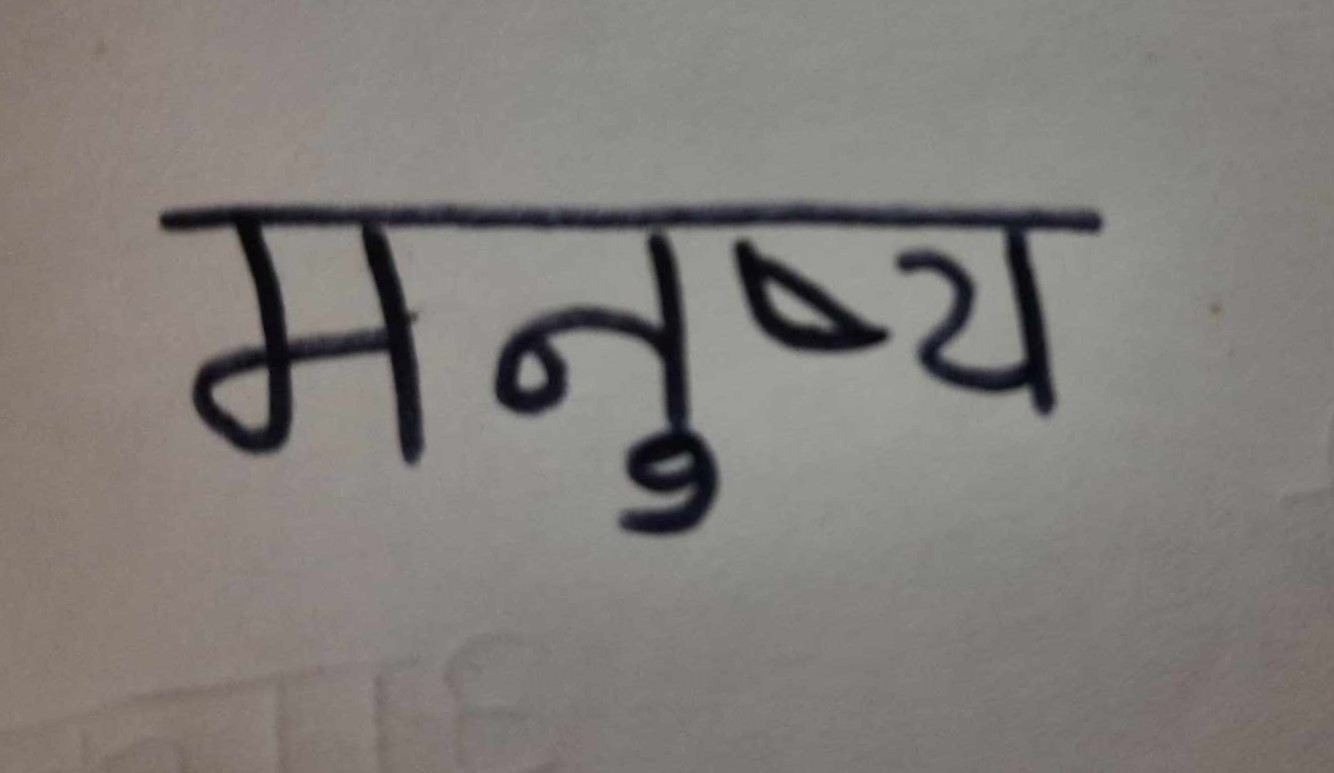 मनुष्य